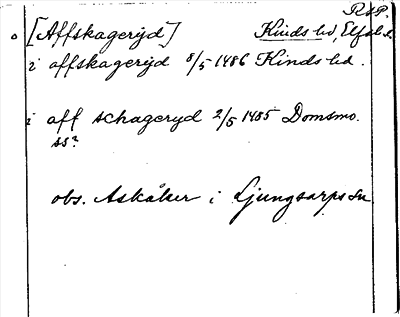 R.A.P.
[Affskageryd] Kinds hd, Elfsb. l.
i affskageryd 8/5 1486 Kinds hd.
i aff schageryd 2/5 1485 Domsmo.
ss?
obs. Askåker i Ljungsarps sn